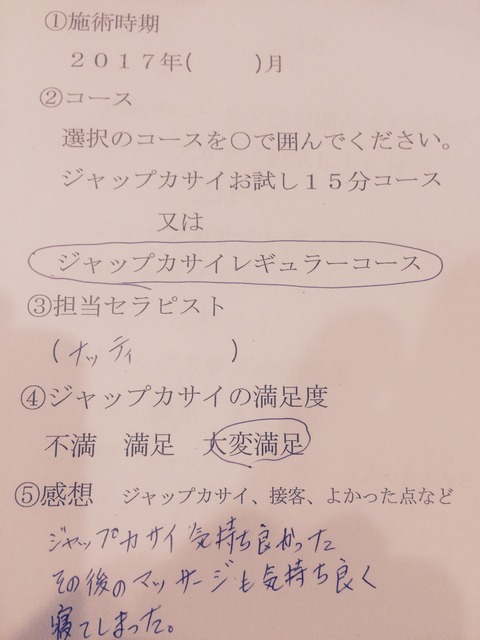 ①施術時期
２０１７年(　　　)月
②コース
選択のコースを○で囲んでください。
ジャップカサイお試し１５分コース
又は
ジャップカサイレギュラーコース
③担当セラピスト
(ナッティ　　　　)
④ジャップカサイの満足度
不満　満足　大変満足
⑤感想　ジャップカサイ、接客、よかった点など
ジャップカサイ気持ち良かった
その後のマッサージも気持ち良く
寝てしまった。